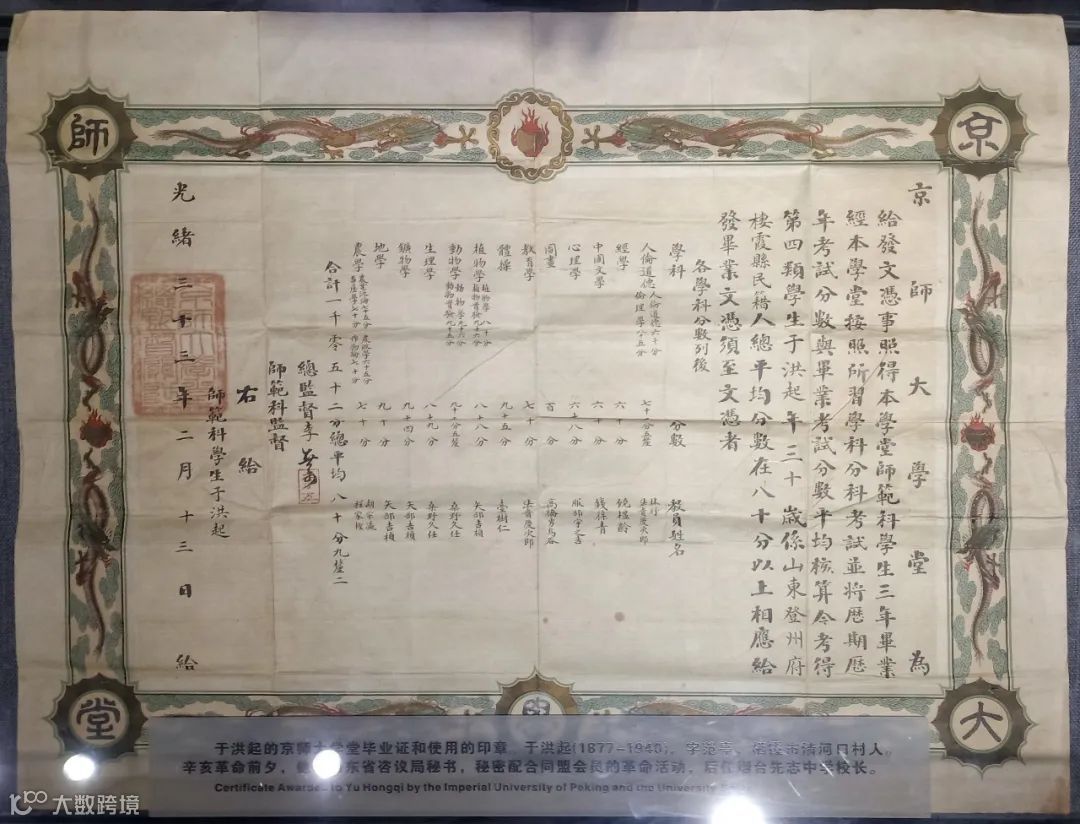 京
師
大
學
堂
京師大學堂為
給發文憑事照得本學堂師範科學生三年畢業
經本學堂按照所習學科分科考試並將歷期歷
年考試分數與畢業考試分數平均核算今考得
第四類學生于洪起年三十歲係山東登州府
棲霞縣民籍人總平均分數在八十分以上相應給
發畢業文憑須至文憑者
各學科分數列後
學科 分數 教員姓名
人倫道德 人倫道德六十分 倫理學 七十分 法貴慶次郎
經學 六十分
中國文學 六十分
心理學 六十八分 服部宇之吉
圖畫 百分 高橋勇
教育學 七十分 法貴慶次郎
體操 九十五分 臺樹仁
植物學 植物學八十分 八十八分 矢部吉楨
動物學 動物學 九十分 桑野久任
生理學 八十九分 桑野久任
鑛物學 九十四分 矢部吉楨
地學 九十分 矢部吉楨
農學 七十分 胡宗瀛
合計一千零五十二分總平均八十分九釐二
總監督李
師範科監督
右給
師範科學生于洪起
光緒三十三年二月十三日給
于洪起的京师大学堂毕业证和使用的印章。于洪起(1877-1940)，字范亭、栖霞市清河口村人。
辛亥革命前夕，东省咨议局秘书，秘密配合同盟会员的革命活动，后任烟台先志中学校长。
Certificate Awarded to Yu Hongqi by the Imperial University of Peking and the University
大数跨境